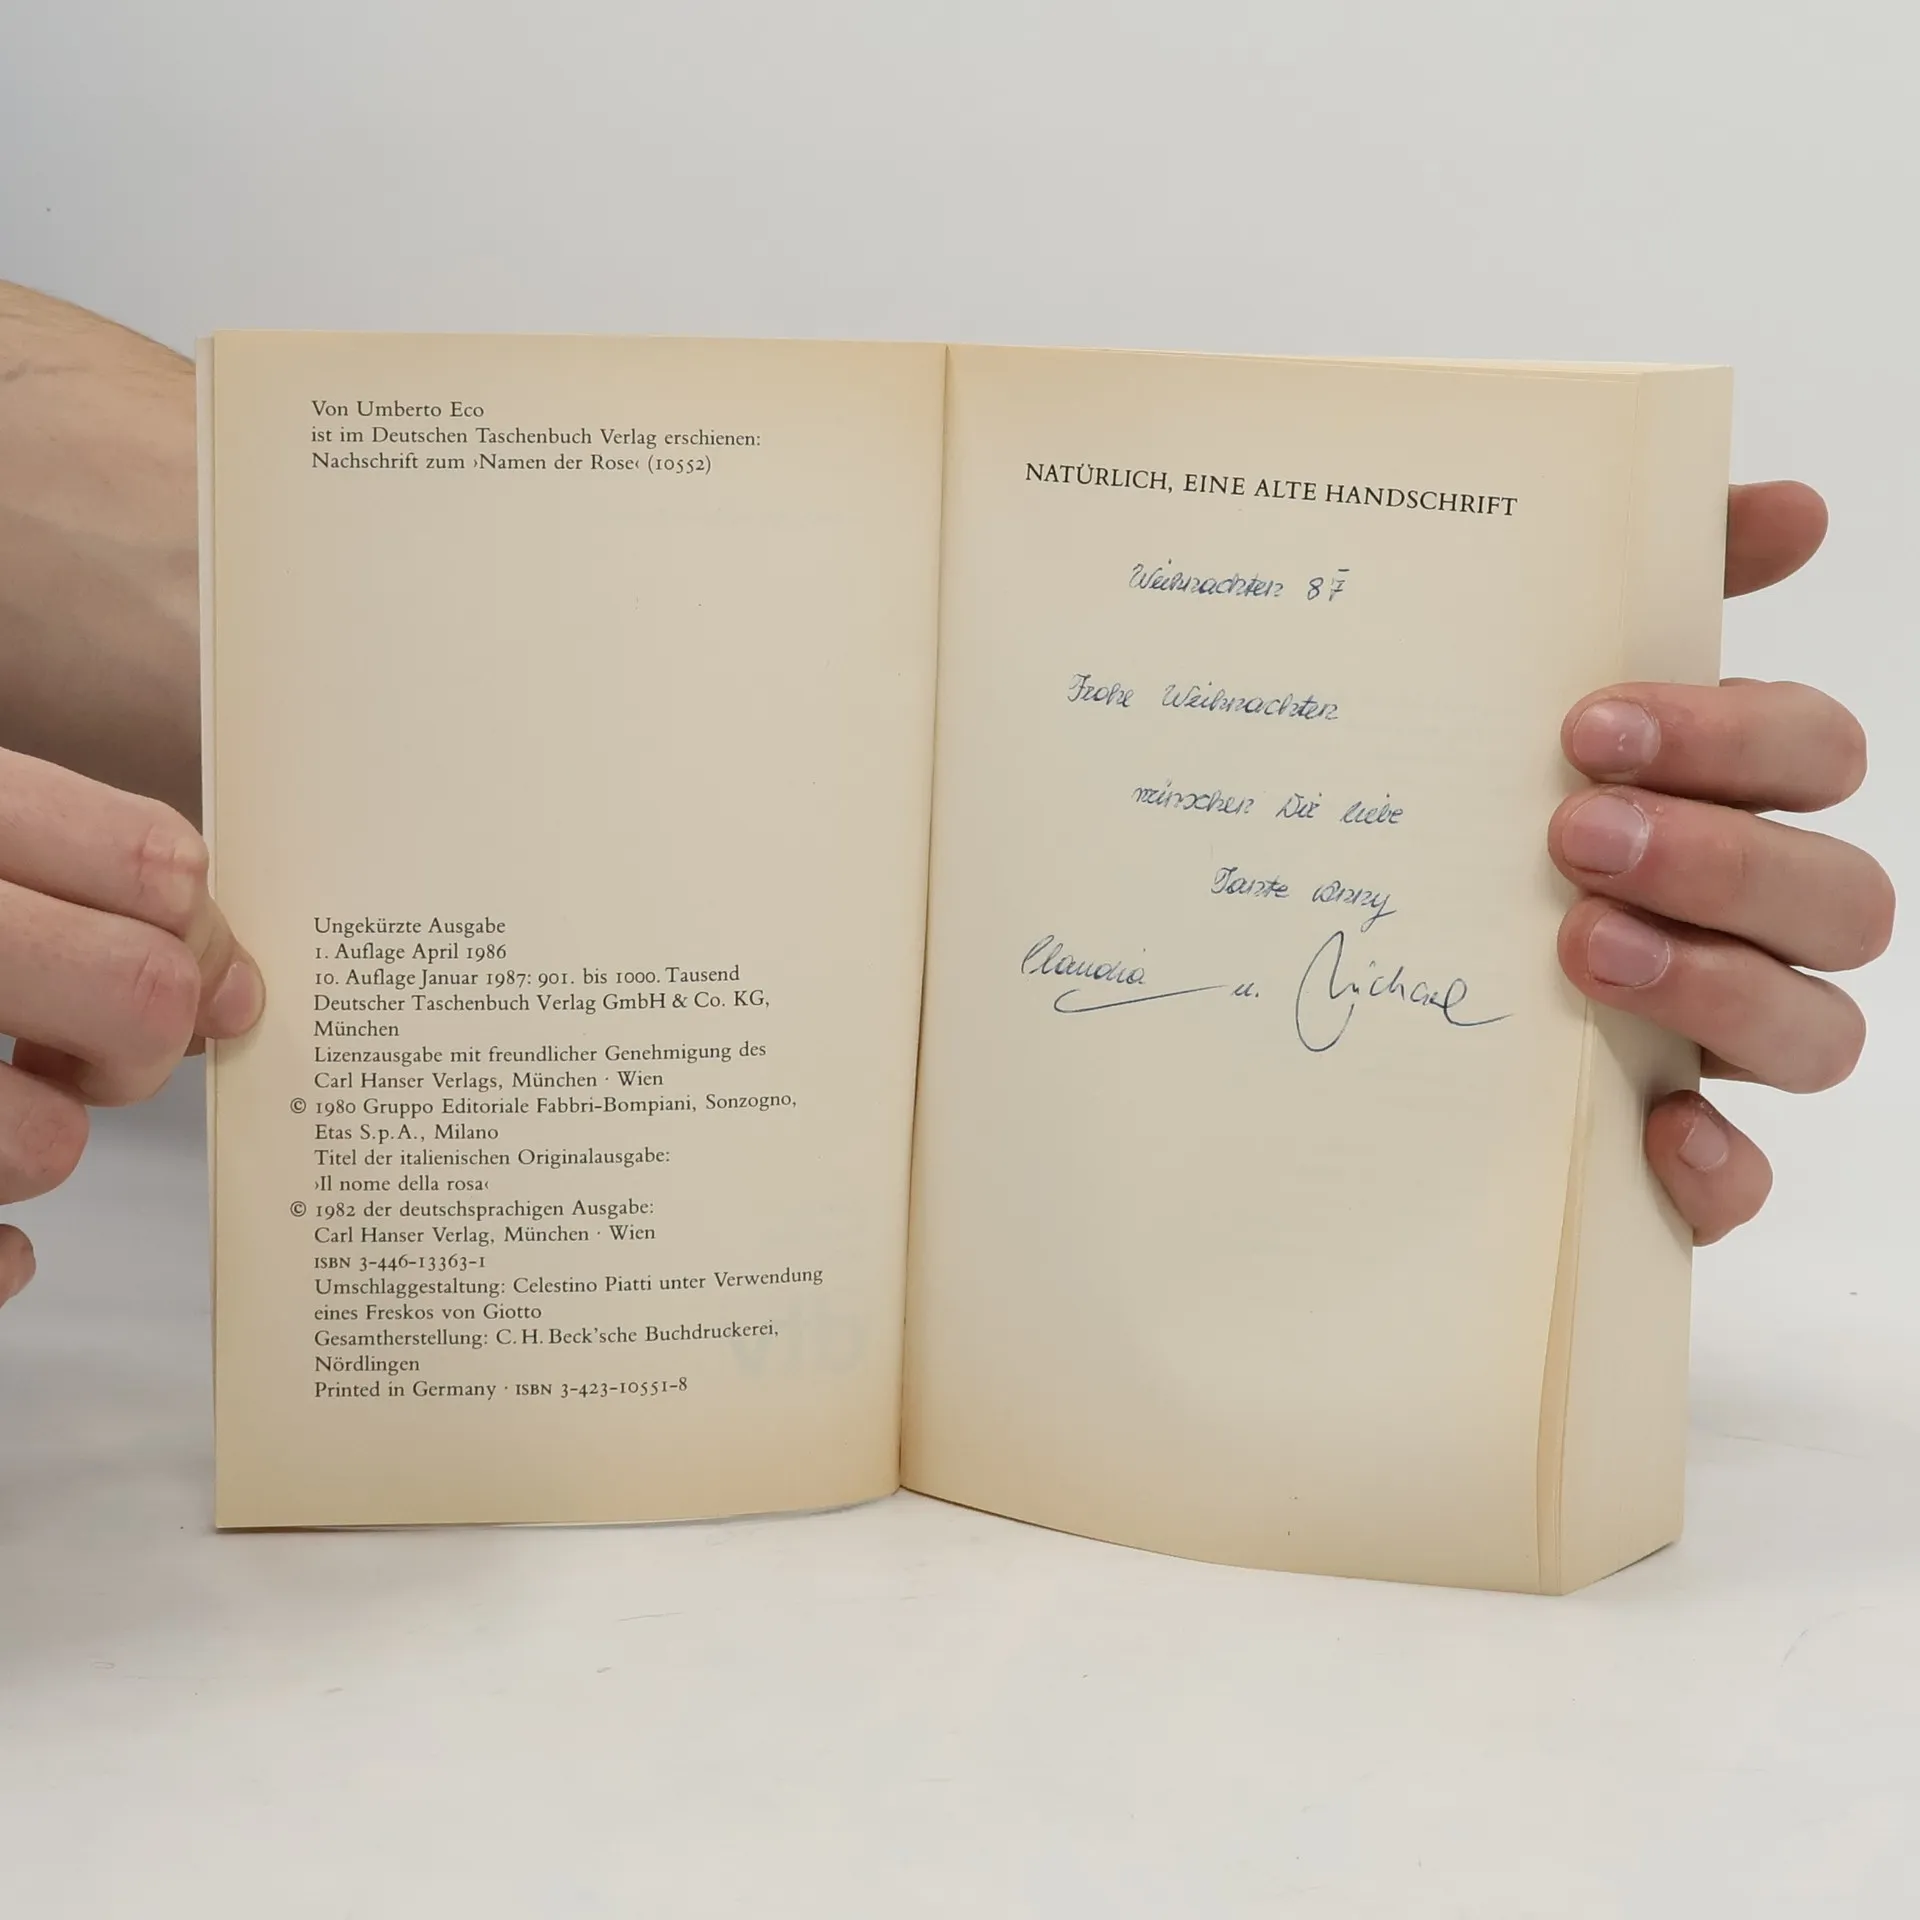 Von Umberto Eco
ist im Deutschen Taschenbuch Verlag erschienen:
Nachschrift zum ›Namen der Rose‹ (10552)
Ungekürzte Ausgabe
1. Auflage April 1986
10. Auflage Januar 1987: 901. bis 1000. Tausend
Deutscher Taschenbuch Verlag GmbH & Co. KG,
München
Lizenzausgabe mit freundlicher Genehmigung des
Carl Hanser Verlags, München · Wien
© 1980 Gruppo Editoriale Fabbri-Bompiani, Sonzogno,
Etas S.p.A., Milano
Titel der italienischen Originalausgabe:
›Il nome della rosa‹
© 1982 der deutschsprachigen Ausgabe:
Carl Hanser Verlag, München · Wien
ISBN 3-446-13363-1
Umschlaggestaltung: Celestino Piatti unter Verwendung
eines Freskos von Giotto
Gesamtherstellung: C. H. Beck'sche Buchdruckerei,
Nördlingen
Printed in Germany · ISBN 3-423-10551-8
NATÜRLICH, EINE ALTE HANDSCHRIFT
Weihnachten 87
Frohe Weihnachten
wünschen Dir liebe
Tante Anny
Claudia u. Michael